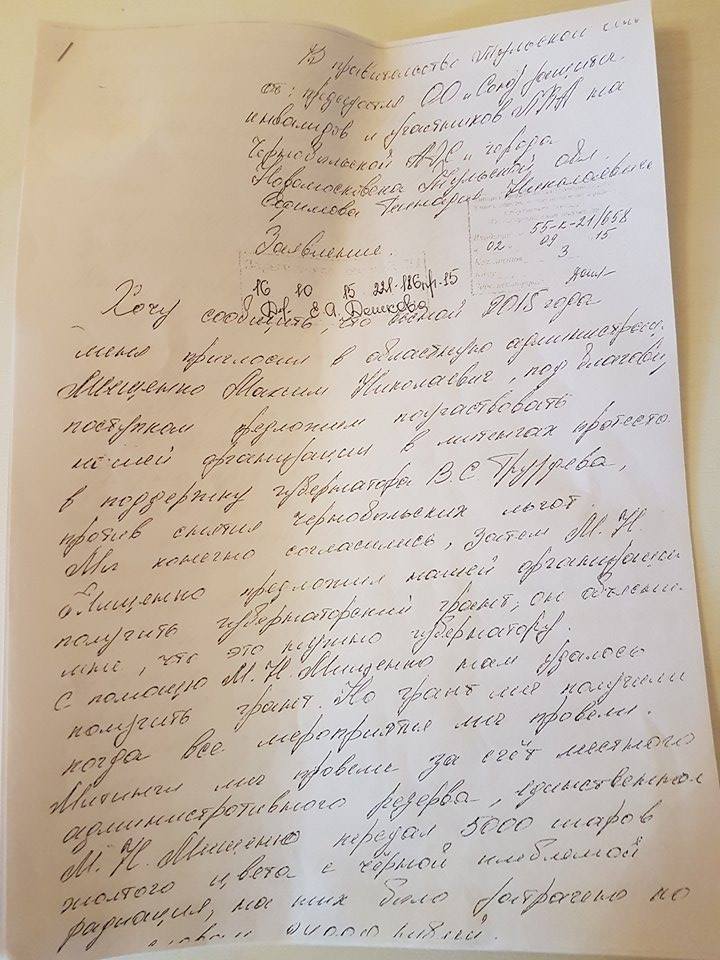 1
В правительство Тульской
от: председателя ОО "Союз защиты
инвалидов и участников ЛПА на
Чернобыльской АЭС" города
Новомосковска Тульской обл.
Геннадия Николаевича
55-К-21/658
02 09 15
3
Заявление.
16 10 15
Е.А. Дешкова
Хочу сообщить, что весной 2015 года
меня пригласил в областную администрац.
Мищенко Максим Николаевич, под
предложил поучаствовать
нашей организации в митингах протеста
в поддержку губернатора В.С. Груздева,
против снятия чернобыльских льгот.
Мы конечно согласились, затем М. Н.
Мищенко предложил нашей организации
получить губернаторский грант, он объяснил
мне, что это нужно губернатору.
С помощью М. Н. Мищенко нам удалось
получить грант. Но грант мы получили
когда все мероприятия мы провели.
Митинги мы провели за счёт местного
административного резерва, единственное
М. Н. Мищенко передал 5000 шаров
жолтого цвета с чёрной эмблемой
радиация, на них было затрачено по